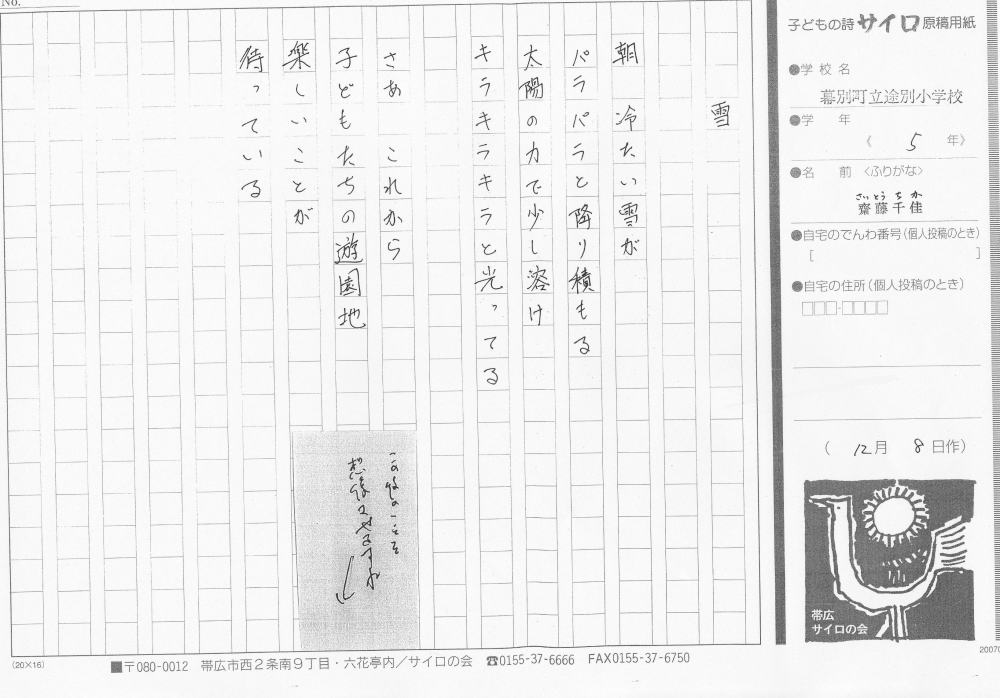 No.
子どもの詩 サイロ 原稿用紙
●学校名
幕別町立途別小学校
●学　年
〈 5 年〉
●名　前 〈ふりがな〉
さいとう ちか
齋藤千佳
●自宅のでんわ番号(個人投稿のとき)
[ ]
●自宅の住所(個人投稿のとき)
□□□-□□□□
( 12月 8日作)
帯広
サイロの会
雪
朝　冷たい雪が
パラパラと降り積もる
太陽の力で少し溶け
キラキラキラと光ってる
さあ　これから
子どもたちの遊園地
楽しいことが
待っている
この後のことを
想像させますね
(20×16)
■〒080-0012 帯広市西2条南9丁目・六花亭内／サイロの会 ☎0155-37-6666 FAX0155-37-6750
20070